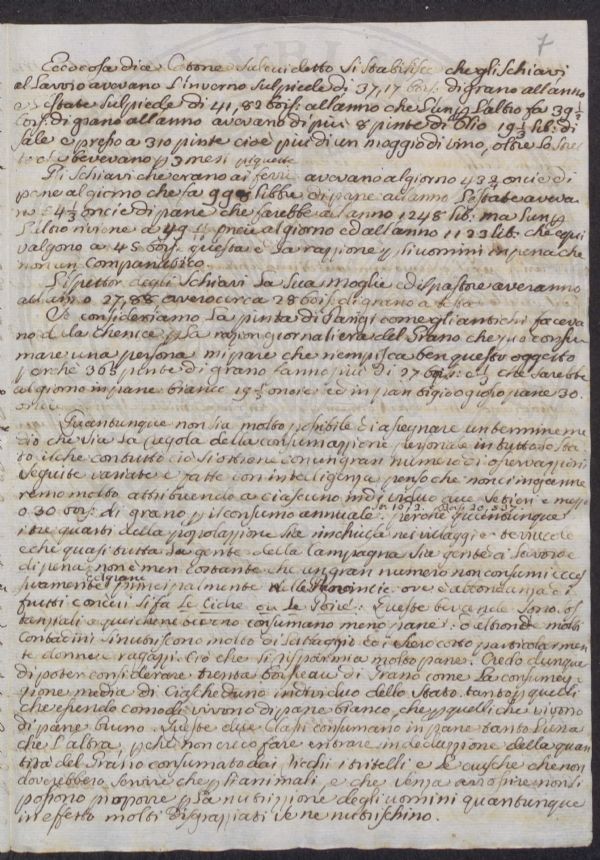 7
Ecco cosa dice Catone sul suidetto si stabilisce che gli schiavi
al Lavoro avevano L'inverno sul piede di 37,17 bois: di grano all'anno
e L'estate sul piede di 41,82 bois: all'anno che L'un p L'altro fa 39 1/2
bois: di grano all'anno avevano di più 8 pinte di olio 19 1/2 lib: di
sale e presso a 310 pinte cioè più di un moggio di vino, oltre lo
che bevevano p 3 mesi piquette
Li Schiavi che erano ai ferri avevano al giorno 43 oncie di
pane al giorno che fa 996 Libbre di pane all'anno L'estate aveva
no 54 1/3 oncie di pane che farebbe all'anno 1248 lib: ma L'un p
L'altro riviene a 49 oncie al giorno ed all'anno 1123 lib: che equi
valgono a 45 bois: questa è la razzione p gli uomini in pena che
non un Companatico.
L'Ispettor degli Schiavi La sua moglie ed il pastore averanno
all'anno 27,88 overo circa 28 bois. di grano a testa
Se consideriamo La pinta di Parigi come gli antichi faceva
no de la chenice p La razion giornaliera del Grano che può consu
mare una persona mi pare che riempisca ben questo oggetto
perché 365 pinte di grano fanno più di 27 bois: che sarebbe
al giorno in pane bianco 19 oncie ed in pan bigio o grosso pane 30.
oncie.
Quantunque non sia molto possibile di assegnare un termine me
dio che sia La regola della consumazzione personale in tutto lo sta
to il che con tutto ciò si ottiene con un gran numero di osservazzioni
seguite variate e fatte con inteligenza penso che non c'inganne
remo molto attribuendo a ciascuno individuo due setieri e mezzo
o 30 bois: di grano p il consumo annuale. perché quantunque
i tre quarti della popolazione sia inchiusa nei villaggi e bicocche
e che quasi tutta La gente della Campagna sia gente a lavoro e
di pena, non è men costante che un gran numero non consumi ecces
sivamente del grano principalmente nelle Provincie ove è abbondanza di
frutti con cui si fa Le Cidre ou Le Poiré: queste bevande sono so
stanziali e qui chene bevono consumano meno pane: o altronde molti
Contadini si nutriscono molto di Lattaggio ed i loro cotto particolarmen
te donne e ragazzi. Ciò che si risparmia molto pane. Credo dunque
di poter considerare trenta boisseau di Grano come La consumaz
zione media di Ciascheduno individuo dello Stato. tanto p quelli
che essendo comodi vivono di pane bianco, che p quelli che vivono
di pane bruno. Queste due Classi consumano in pane tanto L'una
che L'altra, p che non credo fare entrare in deduzzione della quan
tità del Grano consumato dai Ricchi i tritelli e le crusche che non
doverebbero servire che p gli animali, e che senza arrossire non si
possono proporre p La nutrizzione degli uomini quantunque
in effetto molti disgrazziati se ne nutrischino.